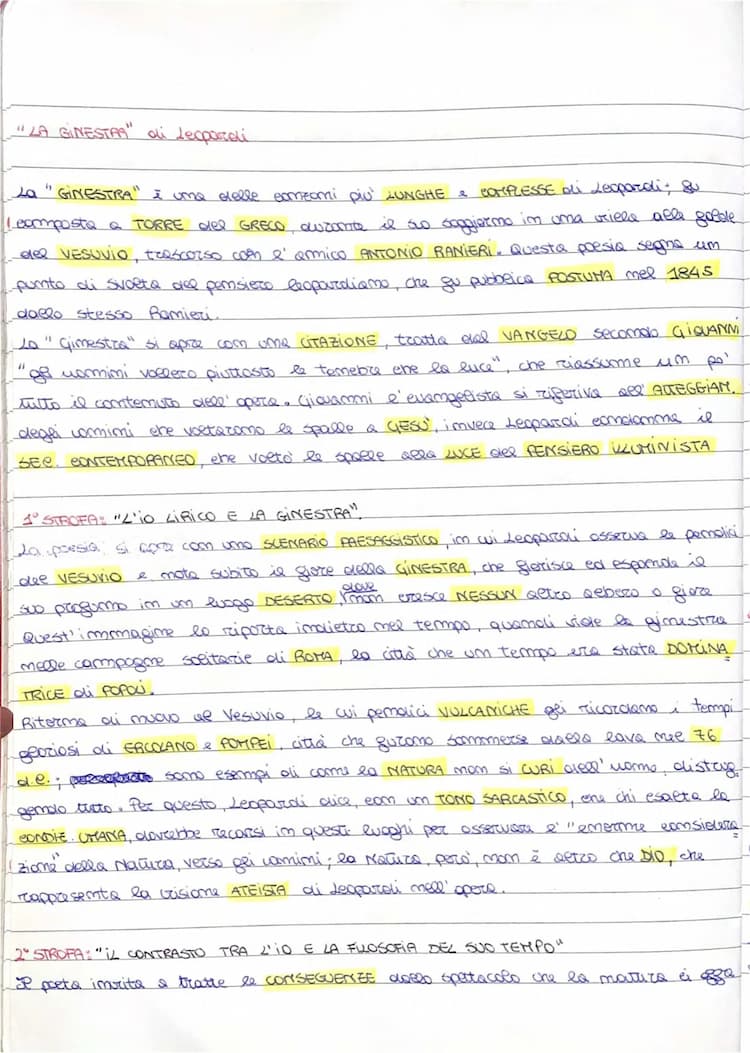 "LA GINESTRA" di Leopardi
La "GINESTRA" è una delle canzoni più LUNGHE e COMPLESSE di Leopardi; fu
composta a TORRE del GRECO, durante il suo soggiorno in una villa alle falde
del VESUVIO, trascorso con l'amico ANTONIO RANIERI. Questa poesia segna un
punto di svolta del pensiero leopardiano, che fu pubblica POSTUMA nel 1845
dallo stesso Ranieri.
La "Ginestra" si apre con una CITAZIONE, tratta dal VANGELO secondo GIOVANNI
"gli uomini vollero piuttosto le tenebre che la luce", che riassume un po'
tutto il contenuto dell'opera. Giovanni l'evangelista si riferiva all'ATTEGGIAM.
degli uomini che voltarono le spalle a GESÙ, invece Leopardi condanna il
SEC. CONTEMPORANEO, che voltò le spalle alla LUCE del PENSIERO ILLUMINISTA
1° STROFA: "L'IO LIRICO E LA GINESTRA".
La poesia si apre con uno SCENARIO PAESAGGISTICO, in cui Leopardi osserva le pendici
del VESUVIO e nota subito il fiore della GINESTRA, che fiorisce ed espande il
suo profumo in un luogo DESERTO, dove non cresce NESSUN altro albero o fiore
Quest'immagine lo riporta indietro nel tempo, quando vide la ginestra
nelle campagne solitarie di ROMA, la città che un tempo era stata DOMINA
TRICE di POPOLI.
Ritorna di nuovo al Vesuvio, le cui pendici VULCANICHE gli ricordano i tempi
gloriosi di ERCOLANO e POMPEI, città che furono sommerse dalla lava nel 76
d.C.; sono esempi di come la NATURA non si CURI dell'uomo, distrug
gendo tutto. Per questo, Leopardi dice, con un TONO SARCASTICO, che chi esalta la
CONDIZ. UMANA, dovrebbe recarsi in questi luoghi per osservare l'"enorme considera
zione" della Natura, verso gli uomini; la Natura, però, non è altro che DIO, che
rappresenta la visione ATEISTA di Leopardi nell'opera.
2° STROFA: "IL CONTRASTO TRA L'IO E LA FILOSOFIA DEL SUO TEMPO"
Il poeta invita a trarre le CONSEGUENZE dallo spettacolo che la natura ci